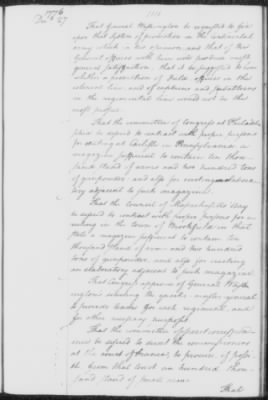 1776
Dec 27
That General Washington be requested to fix
upon that system of promotion in the continental
army which in his opinion and that of the
General officers with him will produce most
general satisfaction, that it be suggested to him
whether a promotion of field officers in the
colonial line and of captains and subalterns
in the regimental line would not be the
most proper.
That the committee of Congress at Philadel
phia be desired to contract with proper persons
for erecting at Carlisle in Pennsylvania a
magazine sufficient to contain ten thou
sand stand of arms and two hundred tons
of gunpowder and also for erecting an elabora
tory adjacent to such magazine.
That the council of Massachusetts Bay
be desired to contract with proper persons for e
recting in the town of Brookfield in that
state a magazine sufficient to contain ten
thousand stand of arms and two hundred
tons of gunpowder, and also for erecting
an elaboratory adjacent to such magazine
That Congress approve of General Wash
ington's directing the quarter master general
to provide teams for each regiment, and
for other necessary purposes.
That the committee of secret correspond
ence be desired to direct the commissioners
at the court of France to procure, if possi
ble from that court an hundred thou
sand stand of small arms
That